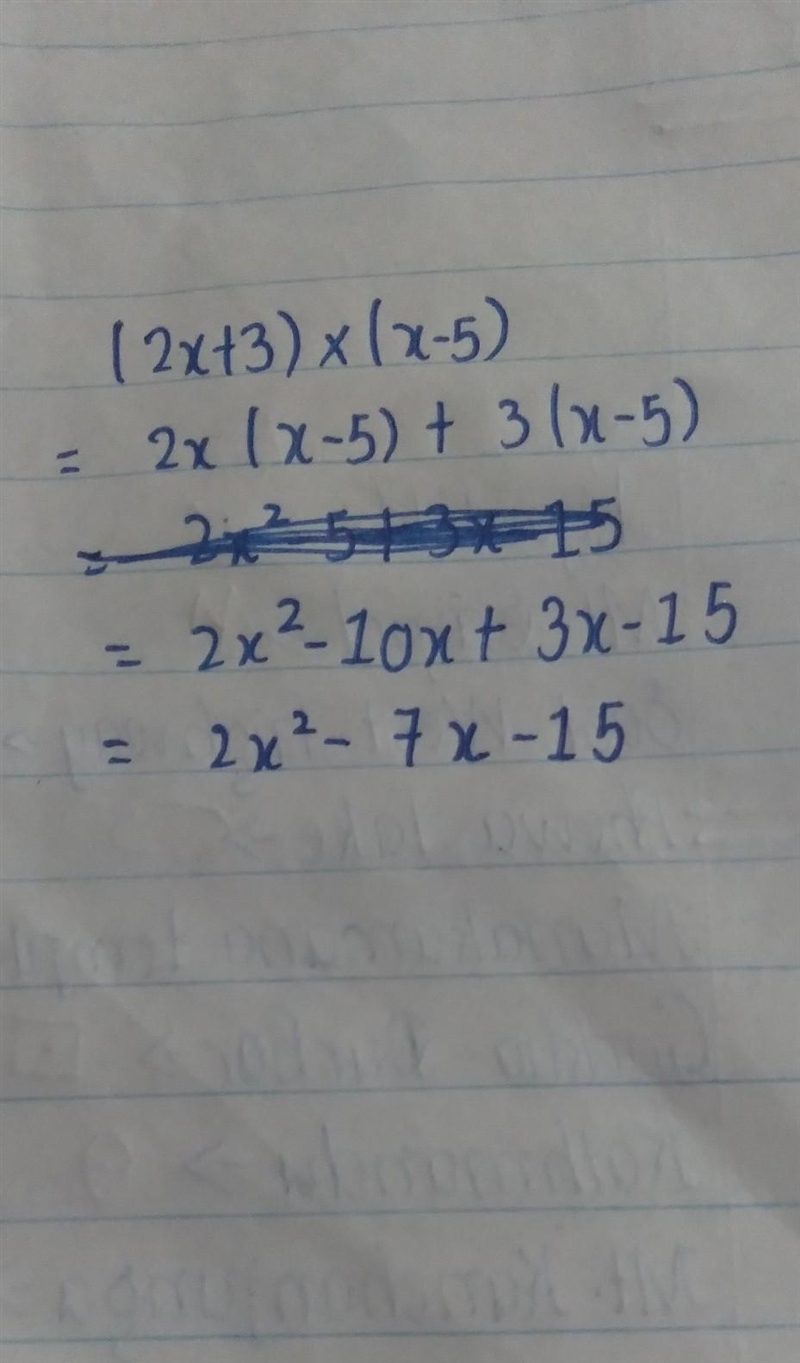 (2x+3)×(x-5)
= 2x(x-5) + 3(x-5)
= 2x² - 5 + 3x - 15
= 2x² - 10x + 3x - 15
= 2x² - 7x - 15